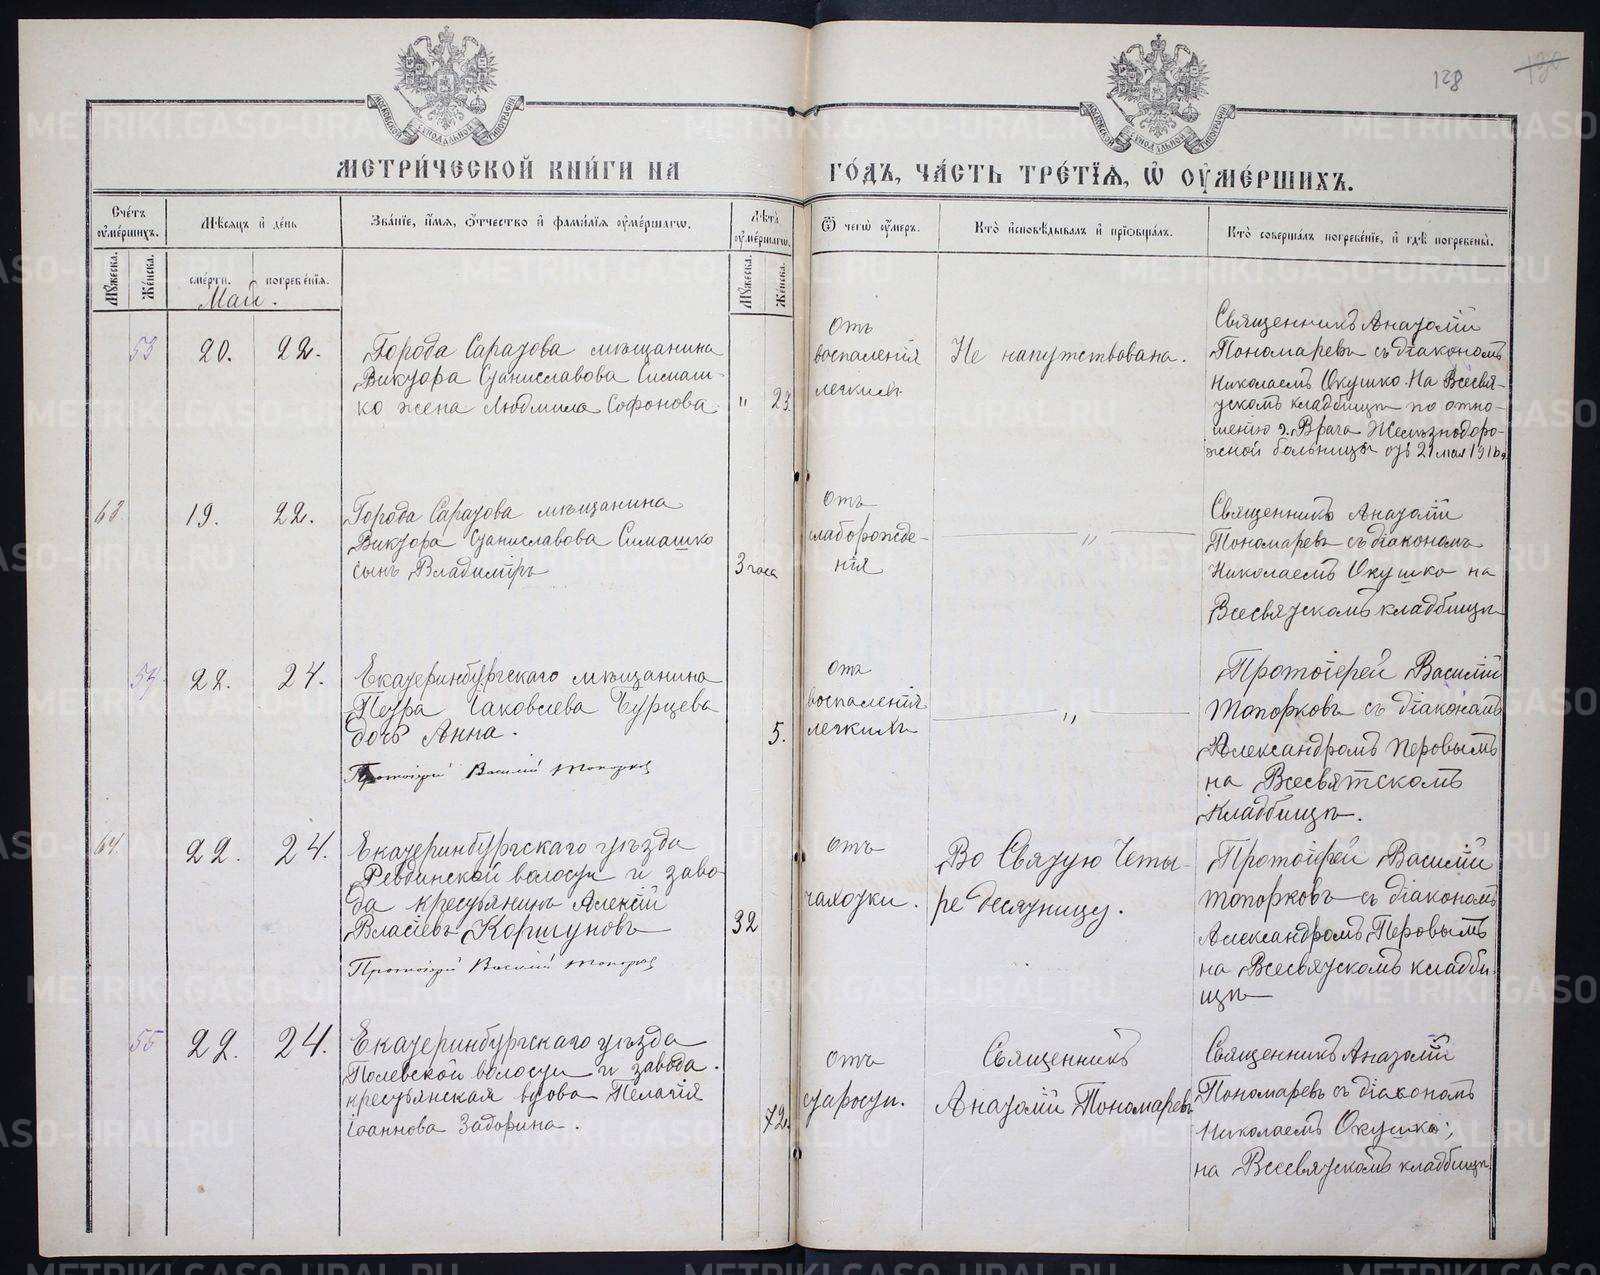 128
130
МОСКОВСКОЙ СѴНОДАЛЬНОЙ ТИПОГРАФІИ
МОСКОВСКОЙ СѴНОДАЛЬНОЙ ТИПОГРАФІИ
МЕТРИ́ЧЕСКОЙ КНИ́ГИ НА
ГО́ДЪ, ЧА́СТЬ ТРЕ́ТЇѦ, Ѽ ОУ҆МЕ́РШИХЪ.
Сче́тъ оумершихъ.
Мѣсяцъ и день
Зва́нїе, и҆́мя, ѻ҆́тчество и҆ фами́лїя оу҆ме́ршагѡ.
Лѣта оумершагѡ.
Ѿ чегѡ̀ оу҆́меръ.
Кто̀ и҆сповѣ́дывалъ и҆ прїѡбща́лъ.
Кто̀ соверша́лъ погребе́нїе, и҆ гдѣ̀ погребены̀.
Мужеска.
Женска.
сме́рти.
погребе́нїя.
Мужеска.
Женска.
Май.
53
20.
22.
Города Саратова мѣщанина
Виктора Станиславова Симаш-
ко жена Людмила Софонова.
"
23.
Отъ
воспаленія
легкихъ
Не напутствована.
Священникъ Анатолій
Пономаревъ съ діакономъ
Николаемъ Окушко. На Всесвя-
тскомъ кладбищѣ по отно-
шенію г. Врача Желѣзнодоро-
жной больницы отъ 21 мая 1916 г.
63
19.
22.
Города Саратова мѣщанина
Виктора Станиславова Симашко
сынъ Владиміръ
3 часа
Отъ
слаборожде-
нія
"
Священникъ Анатолій
Пономаревъ съ діакономъ
Николаемъ Окушко на
Всесвятскомъ кладбищѣ
54
22.
24.
Екатеринбургскаго мѣщанина
Петра Іаковлева Бурцева
дочь Анна.
Протоіерей Василій Топорков
5.
отъ
воспаленія
легкихъ
"
Протоіерей Василій
Топорковъ съ діакономъ
Александромъ Перовымъ
на Всесвятскомъ
кладбищѣ.
64
22.
24.
Екатеринбургскаго уѣзда
Ревдинской волости и заво-
да крестьянинъ Алексій
Власіевъ Коршуновъ
Протоіерей Василій Топорков
32
отъ
чахотки.
Во Святую Четы-
редесятницу.
Протоіерей Василій
Топорковъ съ діакономъ
Александромъ Перовымъ
на Всесвятскомъ кладби-
щѣ
55
22.
24.
Екатеринбургскаго уѣзда
Полевской волости и завода.
крестьянская вдова Пелагія
Іоаннова Задорина.
72.
отъ
старости.
Священникъ
Анатолій Пономаревъ
Священникъ Анатолій
Пономаревъ съ діакономъ
Николаемъ Окушко;
на Всесвятскомъ кладбищѣ.
METRIKI.GASO-URAL.RU